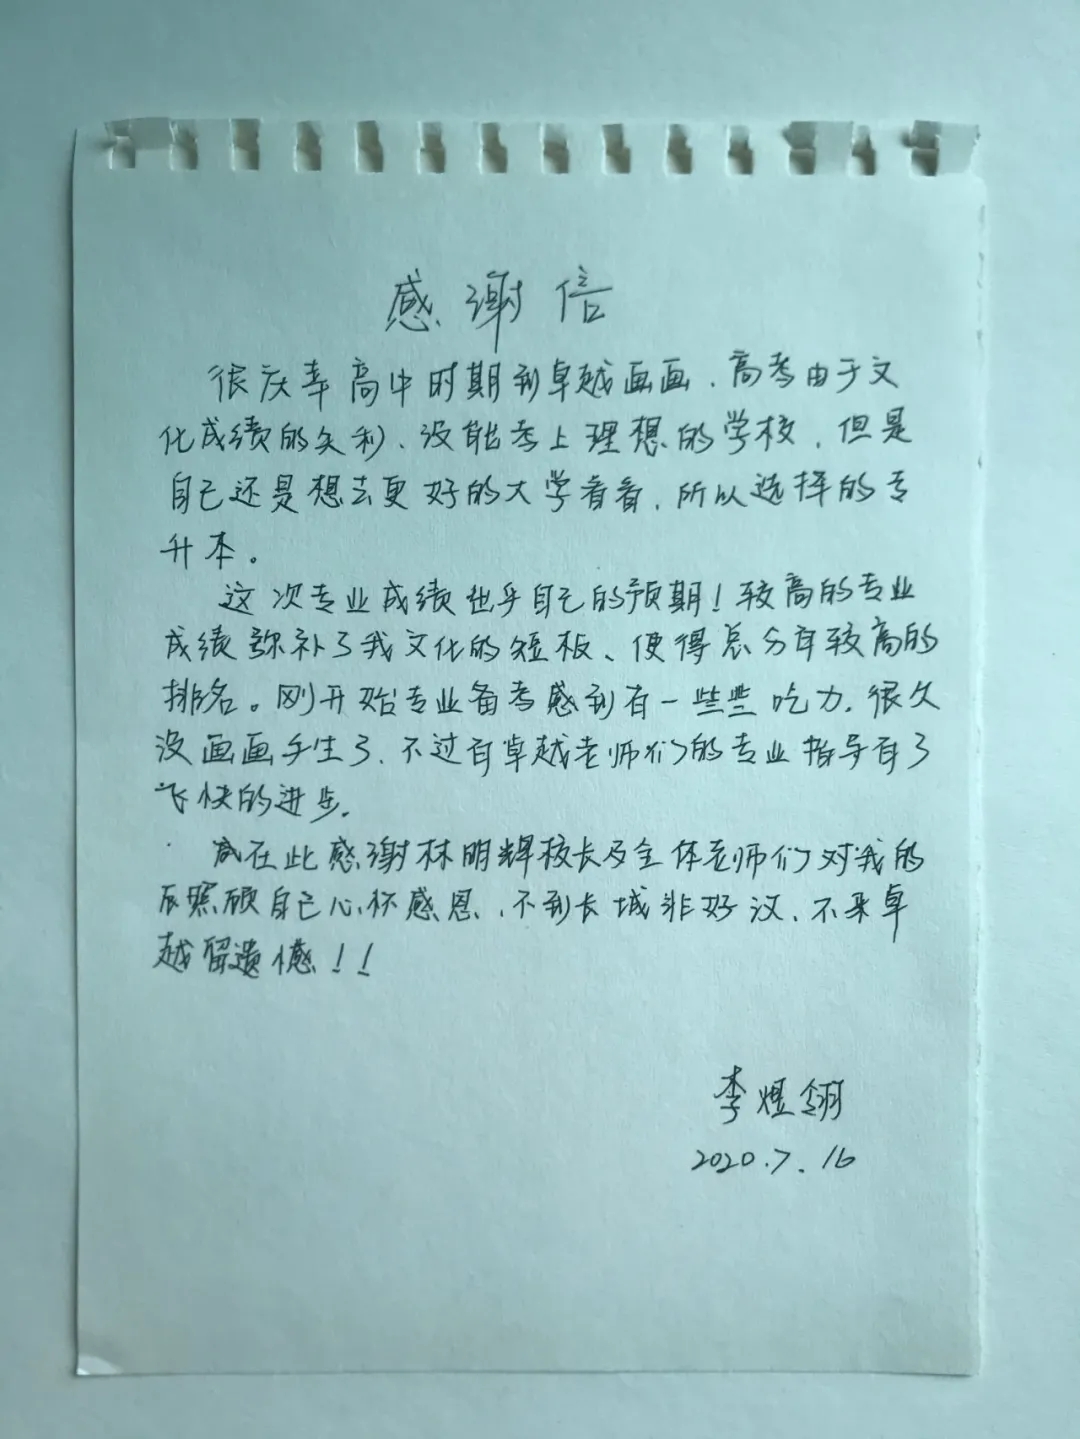 感谢信
很庆幸高中时期到卓越画画，高考由于文
化成绩的失利、没能考上理想的学校，但是
自己还是想去更好的大学看看，所以选择的专
升本。
这次专业成绩出乎自己的预期！较高的专业
成绩弥补了我文化的短板、使得总分有较高的
排名。刚开始专业备考感到有一些些吃力，很久
没画画手生了、不过有卓越老师们的专业指导有了
飞快的进步。
在此感谢林明辉校长及全体老师们对我的
照顾自己心怀感恩、不到长城非好汉、不来卓
越留遗憾！！
李煜翎
2020.7.16